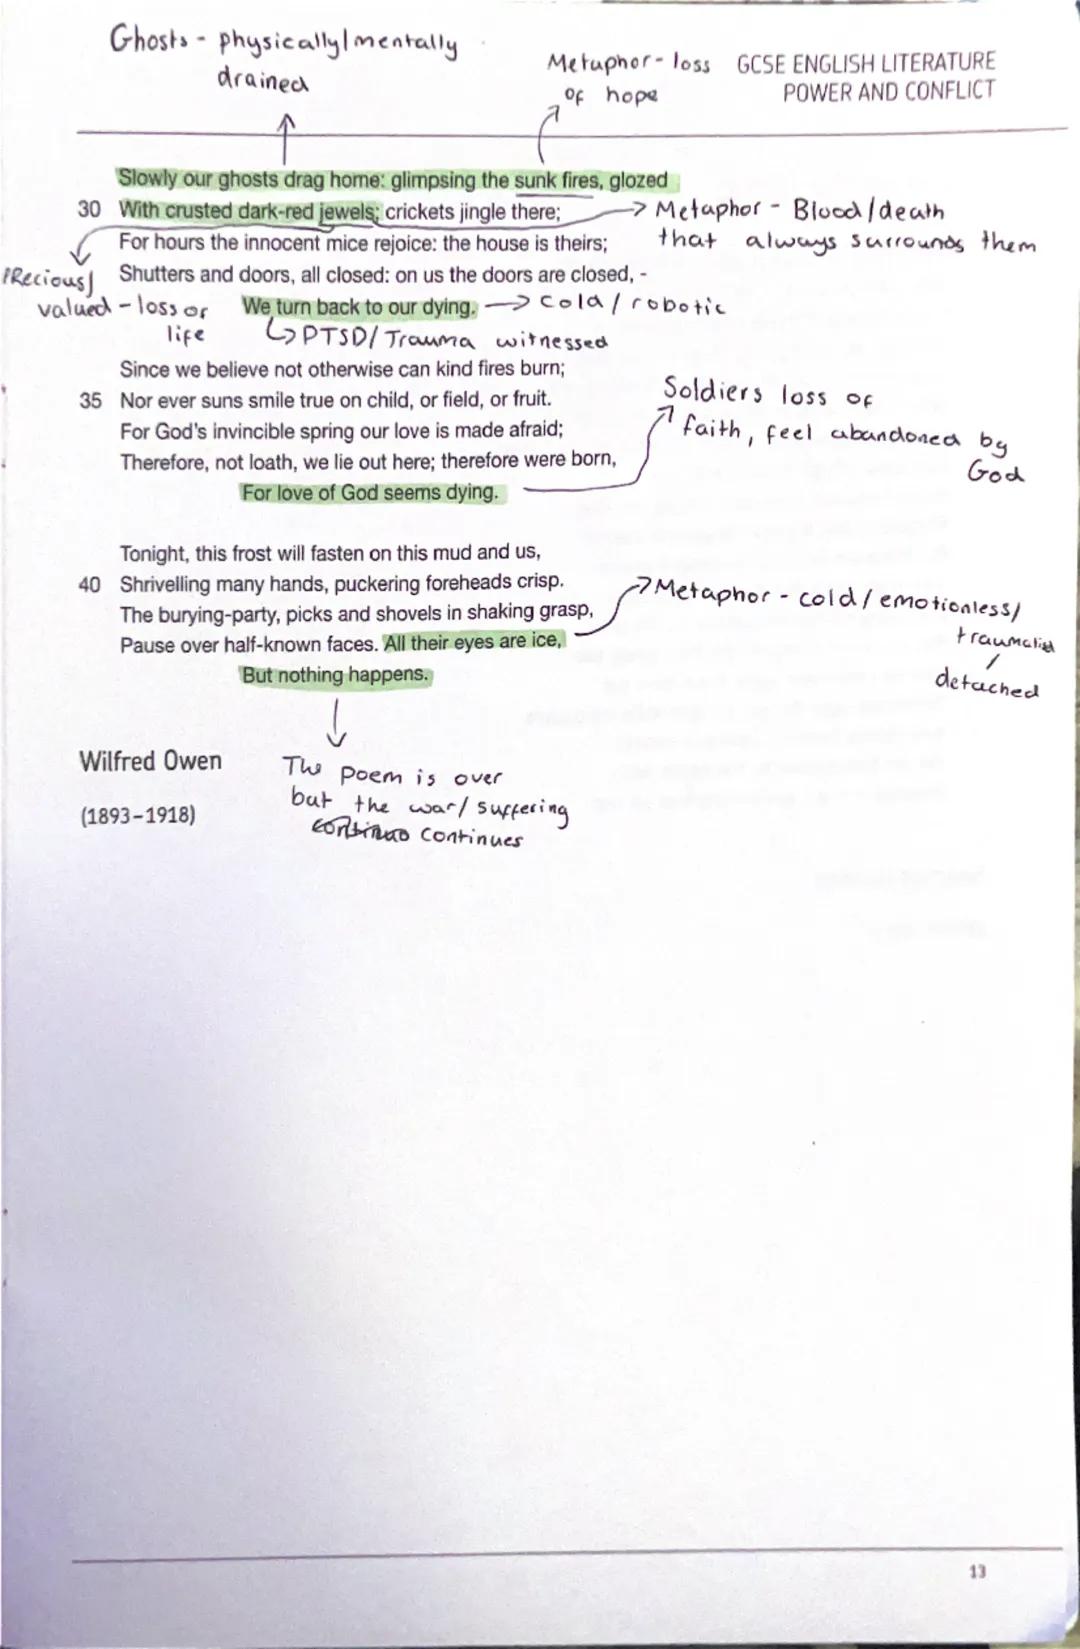 Ghosts - physically/mentally
drained
Metaphor - loss
of hope
GCSE ENGLISH LITERATURE
POWER AND CONFLICT
Slowly our ghosts drag home: glimpsing the sunk fires, glozed
30 With crusted dark-red jewels; crickets jingle there;
→ Metaphor - Blood/death
that always surrounds them
For hours the innocent mice rejoice: the house is theirs;
Shutters and doors, all closed: on us the doors are closed, -
PRecious/
valued - loss of
life
We turn back to our dying. → cold / robotic
↳ PTSD/ Trauma witnessed
Since we believe not otherwise can kind fires burn;
35 Nor ever suns smile true on child, or field, or fruit.
For God's invincible spring our love is made afraid;
Therefore, not loath, we lie out here; therefore were born,
For love of God seems dying.
Soldiers loss of
faith, feel abandoned by
God
Tonight, this frost will fasten on this mud and us,
40 Shrivelling many hands, puckering foreheads crisp.
The burying-party, picks and shovels in shaking grasp,
Pause over half-known faces. All their eyes are ice,
But nothing happens.
Metaphor - cold / emotionless/
/
detached
Wilfred Owen
(1893-1918)
The poem is over
but the war/ suffering
continues
13